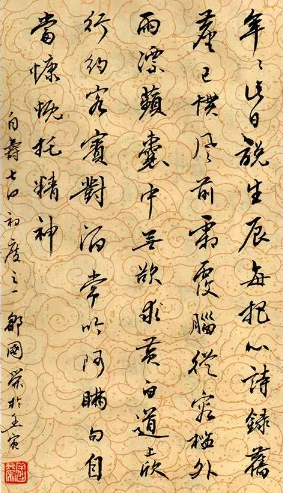 年〻此日說生辰每把心詩錄舊
塵已慣風前霜覆腦從容檻外
雨漂蘋囊中無欲求黃白道上欣
行約客賓對酒常吟阿瞞句自
當慷慨托精神
自壽七四初度之一鄒國榮於壬寅